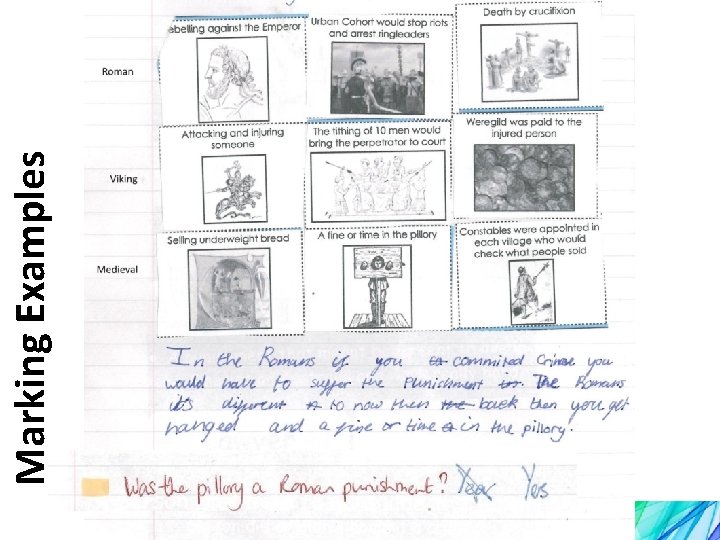 Marking Examples
Roman
ebelling against the Emperor
Urban Cohort would stop riots
and arrest ringleaders
Death by crucifixion
Viking
Attacking and injuring
someone
The tithing of 10 men would
bring the perpetrator to court
Weregild was paid to the
injured person
Medieval
Selling underweight bread
A fine or time in the pillory
Constables were appointed in
each village who would
check what people sold
In the Romans if you commited Crime you
would have to suffer the Punishment The Romans
it's different to now then back then you get
hanged and a fine or time in the pillory.
Was the pillory a Roman punishment? Yes